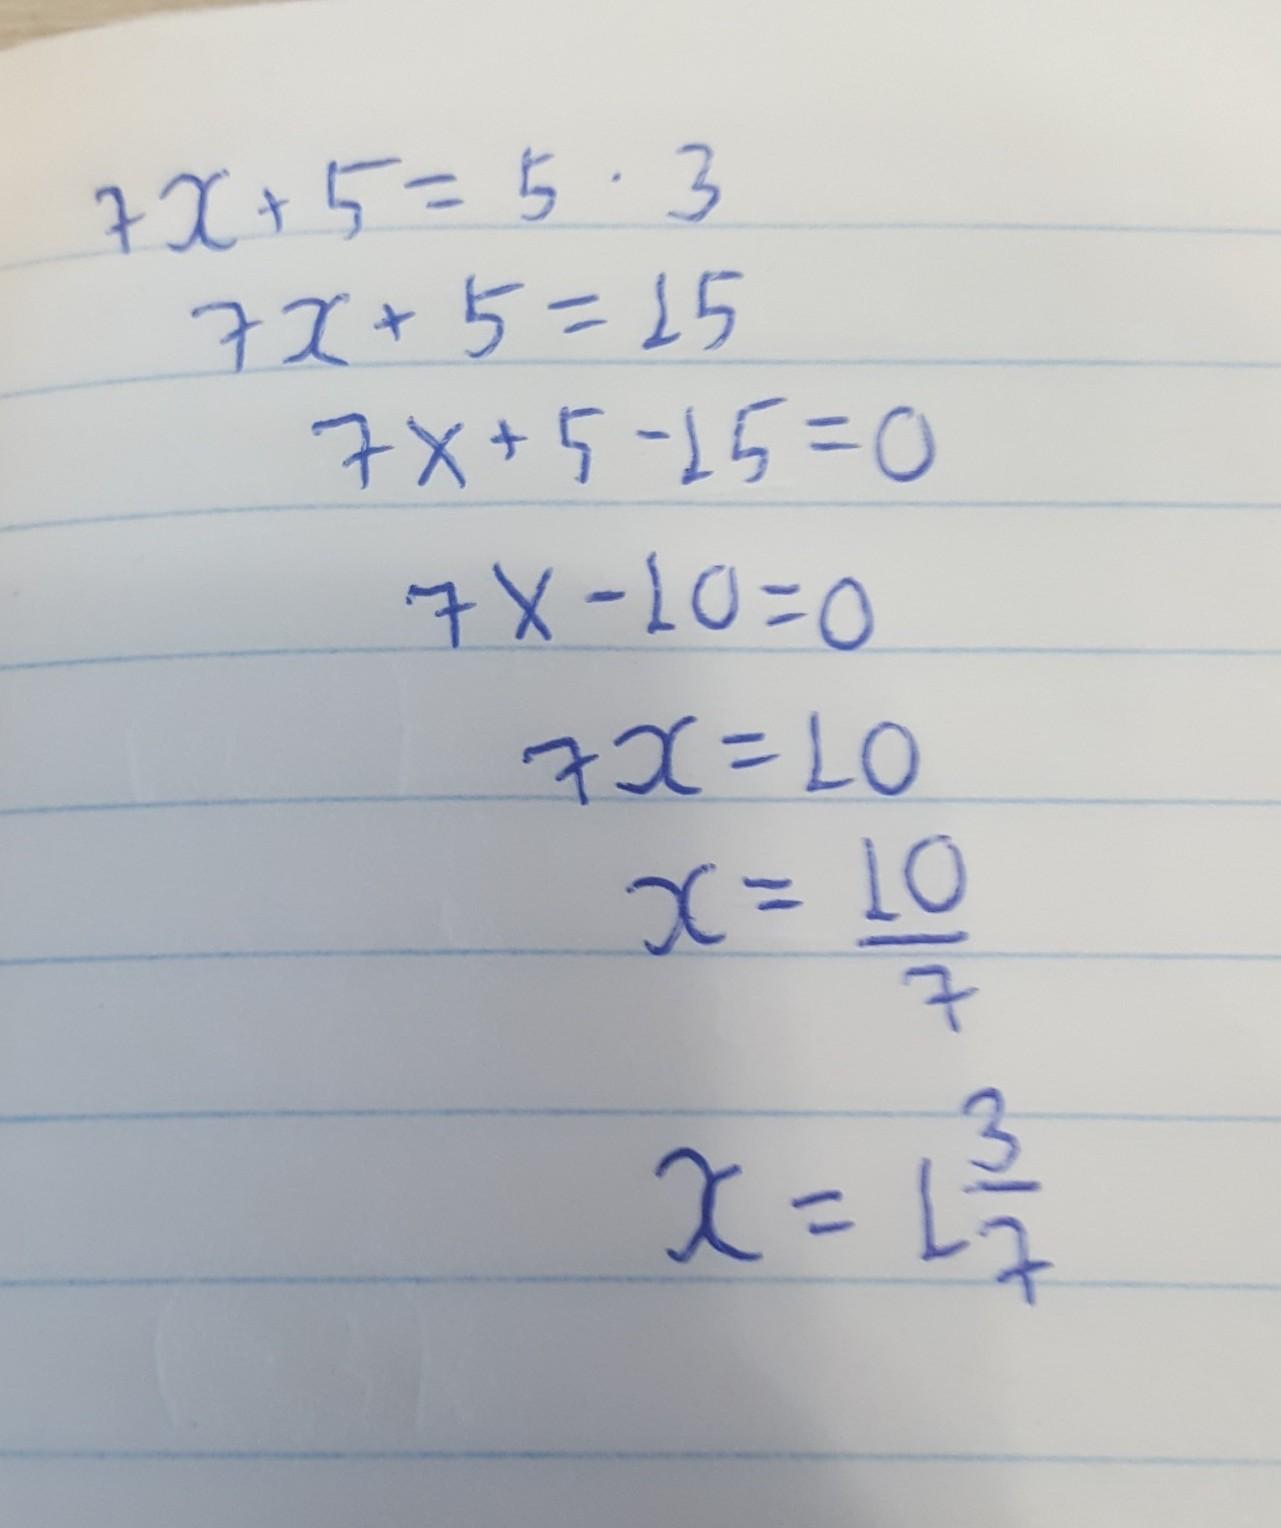 7x + 5 = 5 · 3
7x + 5 = 15
7x + 5 - 15 = 0
7x - 10 = 0
7x = 10
x = 10/7
x = 1 3/7